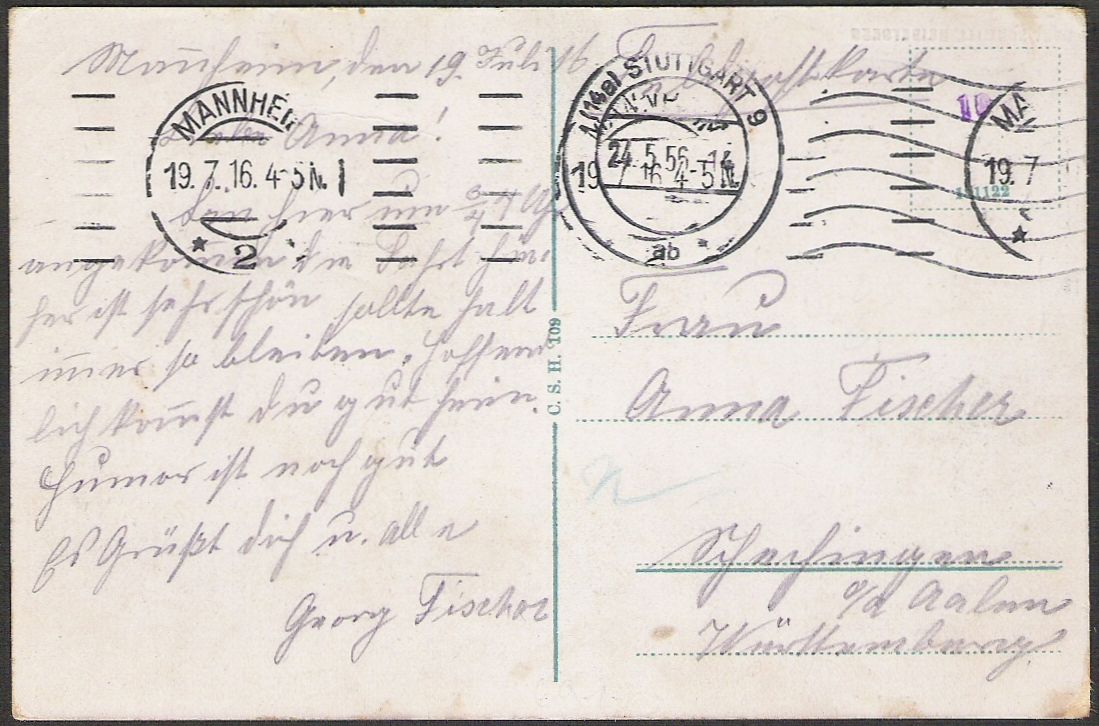 Mannheim, den 19. Juli 16
Feldpostkarte
MANNHEIM
19. 7. 16. 4-5 N.
* 2
(14a) STUTTGART 9
24. 5. 56
19 7 16 4-5 N.
ab *
10
MA
19. 7
*
Anna!
hier um 3/4 4 Uhr
angekommen die Fahrt hie
her ist sehr schön sollte halt
immer so bleiben. Hoffent
lich kommst du gut heim.
Humor ist noch gut
Es Grüßt dich u. alle
Georg Fischer
C. S. H. 109
Frau
Anna Fischer
Schechingen
o/a Aalen
Württemberg